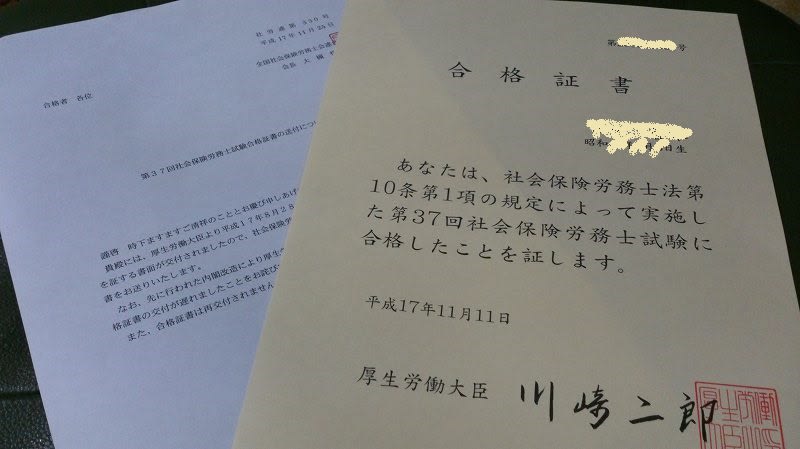 社労連第390号
平成17年11月25日
全国社会保険労務士会連
会長 大槻
合格者 各位
第37回社会保険労務士試験合格証書の送付につい
謹啓 時下ますますご清祥のこととお慶び申しあげ
貴殿には、厚生労働大臣より平成17年8月28
を証する書面が交付されましたので、社会保険労
書をお送りいたします。
なお、先に行われた内閣改造により厚生労
格証書の交付が遅れましたことをお詫び
また、合格証書は再交付されません
第 号
合格証書
昭和 日生
あなたは、社会保険労務士法第
10条第1項の規定によって実施し
た第37回社会保険労務士試験に
合格したことを証します。
平成17年11月11日
厚生労働大臣 川崎二郎